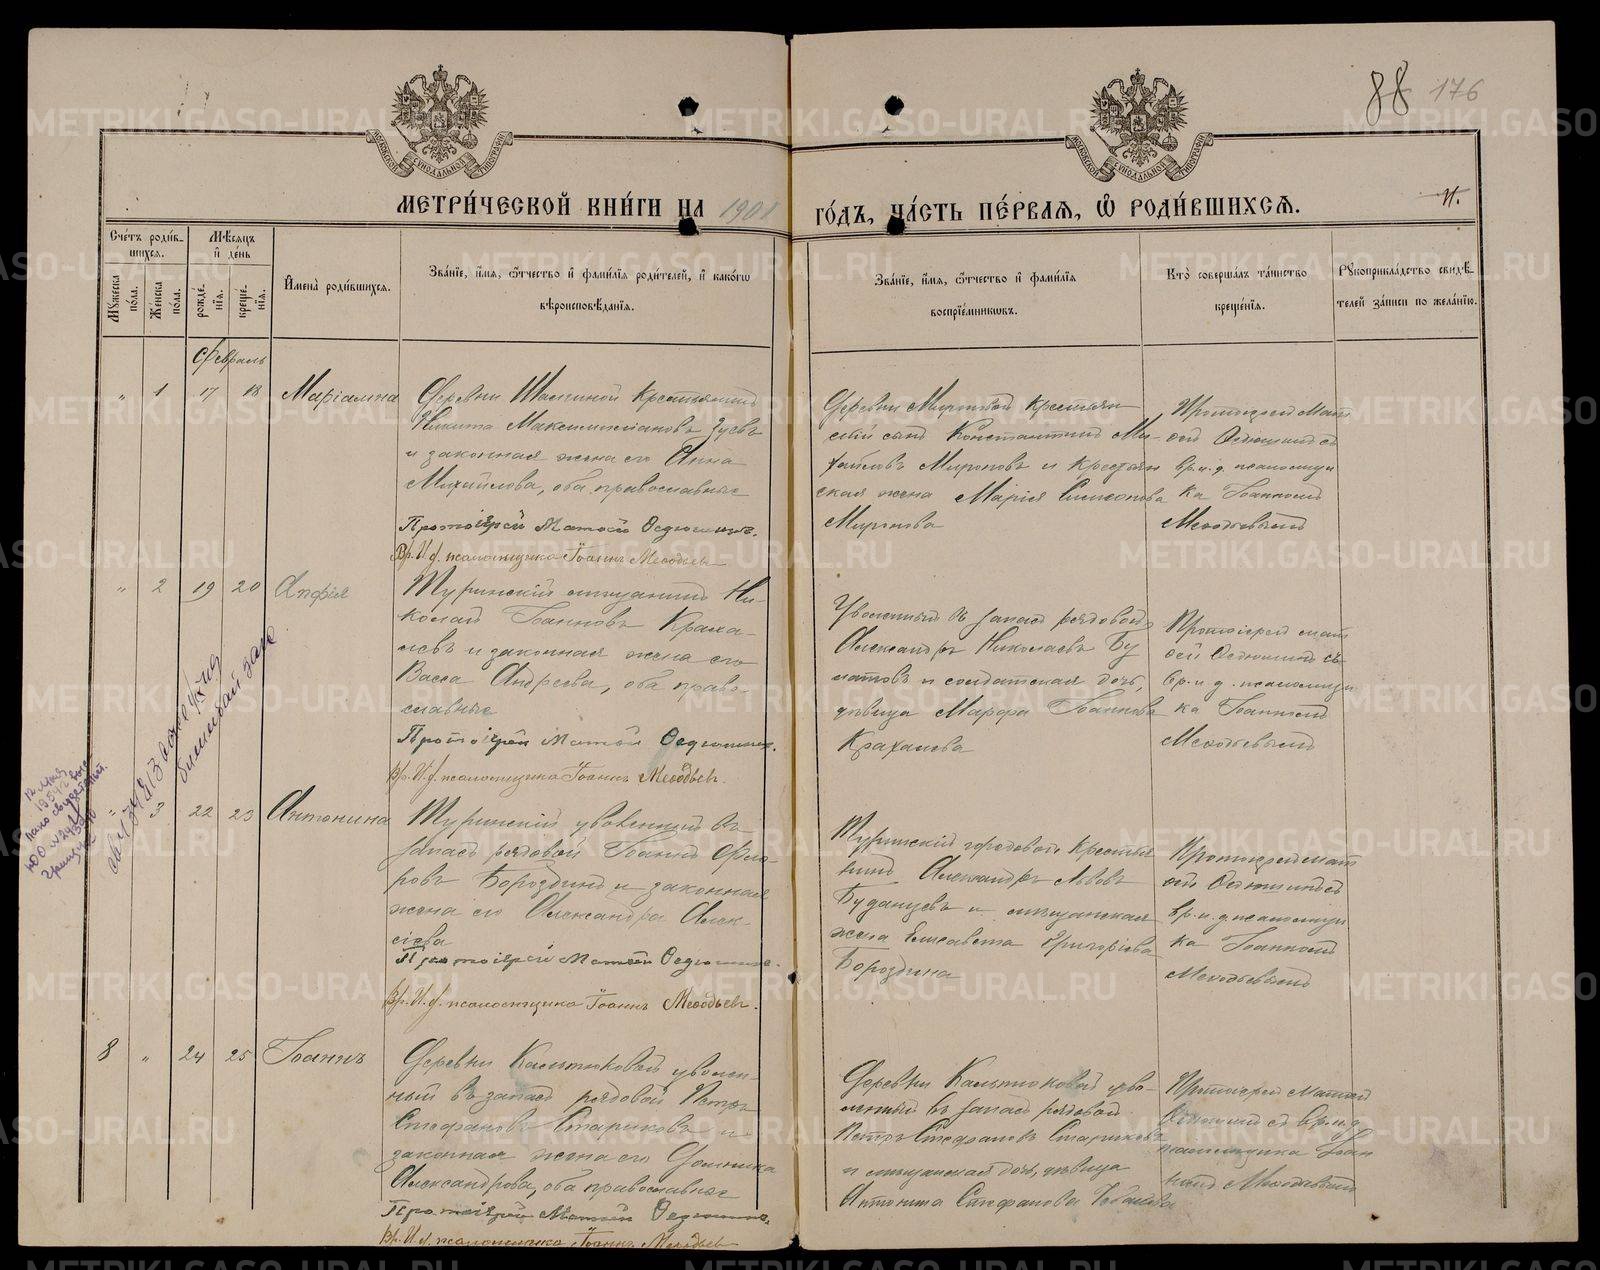 88 176
МЕТРИ́ЧЕСКОЙ КНИ́ГИ НА 1901 ГО́ДЪ, ЧА́СТЬ ПЕ́РВАЯ, Ѡ РОДИ́ВШИХСЯ.
Сче́тъ роди́вшихся.
Мꙋ́жеска по́ла.
Же́нска по́ла.
Мѣ́сяцъ и҆ де́нь
рожде́нїя.
креще́нїя.
И҆мена̀ роди́вшихся.
Зва́нїе, и҆́мя, ѻ҆́тчество и҆ фами́лїя роди́телей, и҆ како́гѡ
вѣроисповѣ́данїя.
Зва́нїе, и҆́мя, ѻ҆́тчество и҆ фами́лїя
воспрїе́мникѡвъ.
Кто̀ соверша́лъ та́инство
креще́нїя.
Рꙋкоприкла́дство свидѣ́телей за́писи по жела́нїю.
Февраль
„ 1 17 18 Маріамна
Деревни Шалгиной крестьянинъ
Никита Максимиліановъ Зуевъ
и законная жена его Анна
Михайлова, оба православные
Протоіерей Матѳей Ѳедюшинъ.
Вр. И. д. псаломщика Іоаннъ Меѳодьевъ
Деревни Мироновой крестьян
скій сынъ Константинъ Ми-
хайловъ Мироновъ и крестьян
ская жена Марія Симеонова
Миронова
Протоіерей Мат
ѳей Ѳедюшинъ съ
вр. и. д. псаломщи
ка Іоанномъ
Меѳодьевымъ
„ 2 19 20 Апфія
Туринскій мещанинъ Ни-
колай Іоанновъ Краха-
левъ и законная жена его
Васса Андреева, оба право-
славные
Протоіерей Матѳей Ѳедюшинъ.
Вр. И. д. псаломщика Іоаннъ Меѳодьевъ.
Уволенный въ запасъ рядовой
Александръ Николаевъ Бу
латовъ и солдатская дочь,
девица Марѳа Іоаннова
Крахалева
Протоіерей Мат
ѳей Ѳедюшинъ съ
вр. и. д. псаломщи
ка Іоанномъ
Меѳодьевымъ
„ 3 22 23 Антонина
Туринскій уволенный въ
запасъ рядовой Іоаннъ Фло-
ровъ Бороздинъ и законная
жена его Александра Алек-
сіева
Протоіерей Матѳей Ѳедюшинъ.
Вр. И. д. псаломщика Іоаннъ Меѳодьевъ.
Туринскій городовой крестья
нинъ Александръ Львовъ
Буданцевъ и мещанская
жена Елисавета Григоріева
Бороздина
Протоіерей Мат
ѳей Ѳедюшинъ съ
вр. и. д. псаломщи
ка Іоанномъ
Меѳодьевымъ
8 „ 24 25 Іоаннъ
Деревни Калтюковой уволен-
ный въ запасъ рядовой Петръ
Стефановъ Стариковъ и
законная жена его Домника
Александрова, оба православные
Протоіерей Матѳей Ѳедюшинъ.
Вр. И. д. псаломщика Іоаннъ Меѳодьевъ
Деревни Калтюковой уво-
ленный въ запасъ рядовой
Петръ Стефановъ Стариковъ
и мещанская дочь, девица
Антонина Стефанова
Протоіерей Матѳей
Ѳедюшинъ съ вр. и. д.
псаломщика Іоан
номъ Меѳодьевымъ
METRIKI.GASO-URAL.RU